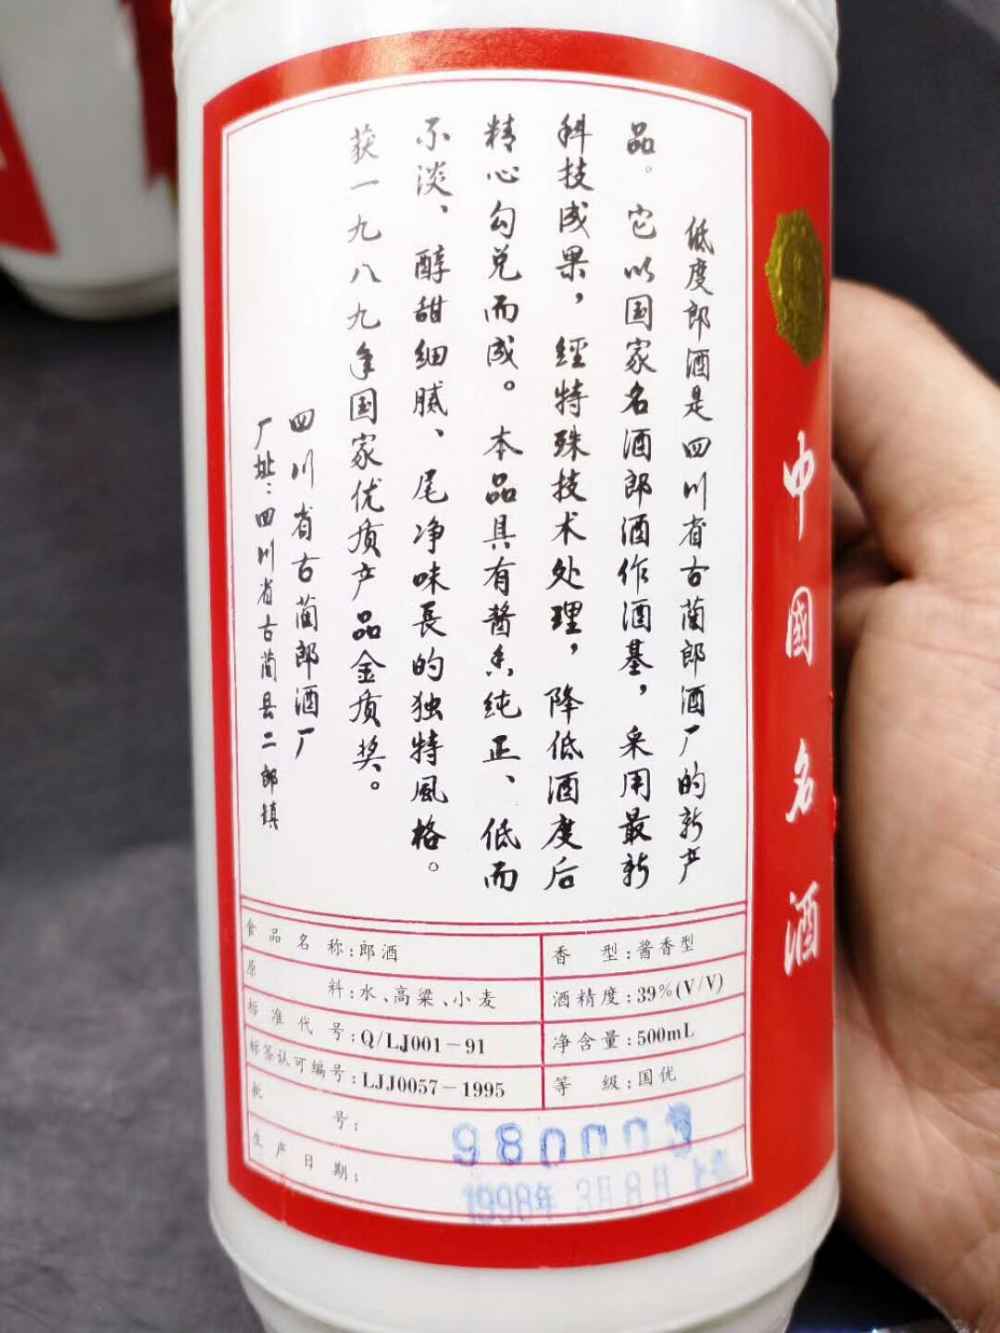 低度郎酒是四川省古蔺郎酒厂的新产
品。它以国家名酒郎酒作酒基，采用最新
科技成果，經特殊技术处理，降低酒度后
精心勾兑而成。本品具有酱香纯正、低而
不淡、醇甜细腻、尾净味長的独特風格。
获一九八九年国家优质产品金质奖。
四川省古蔺郎酒厂
厂址：四川省古蔺县二郎镇
中國名酒
食品名称：郎酒
香型：酱香型
原料：水、高粱、小麦
酒精度：39%(V/V)
标准代号：Q/LJ001-91
净含量：500mL
标签认可编号：LJJ0057-1995
等级：国优
批号：9800003
生产日期：1998年 3月8日